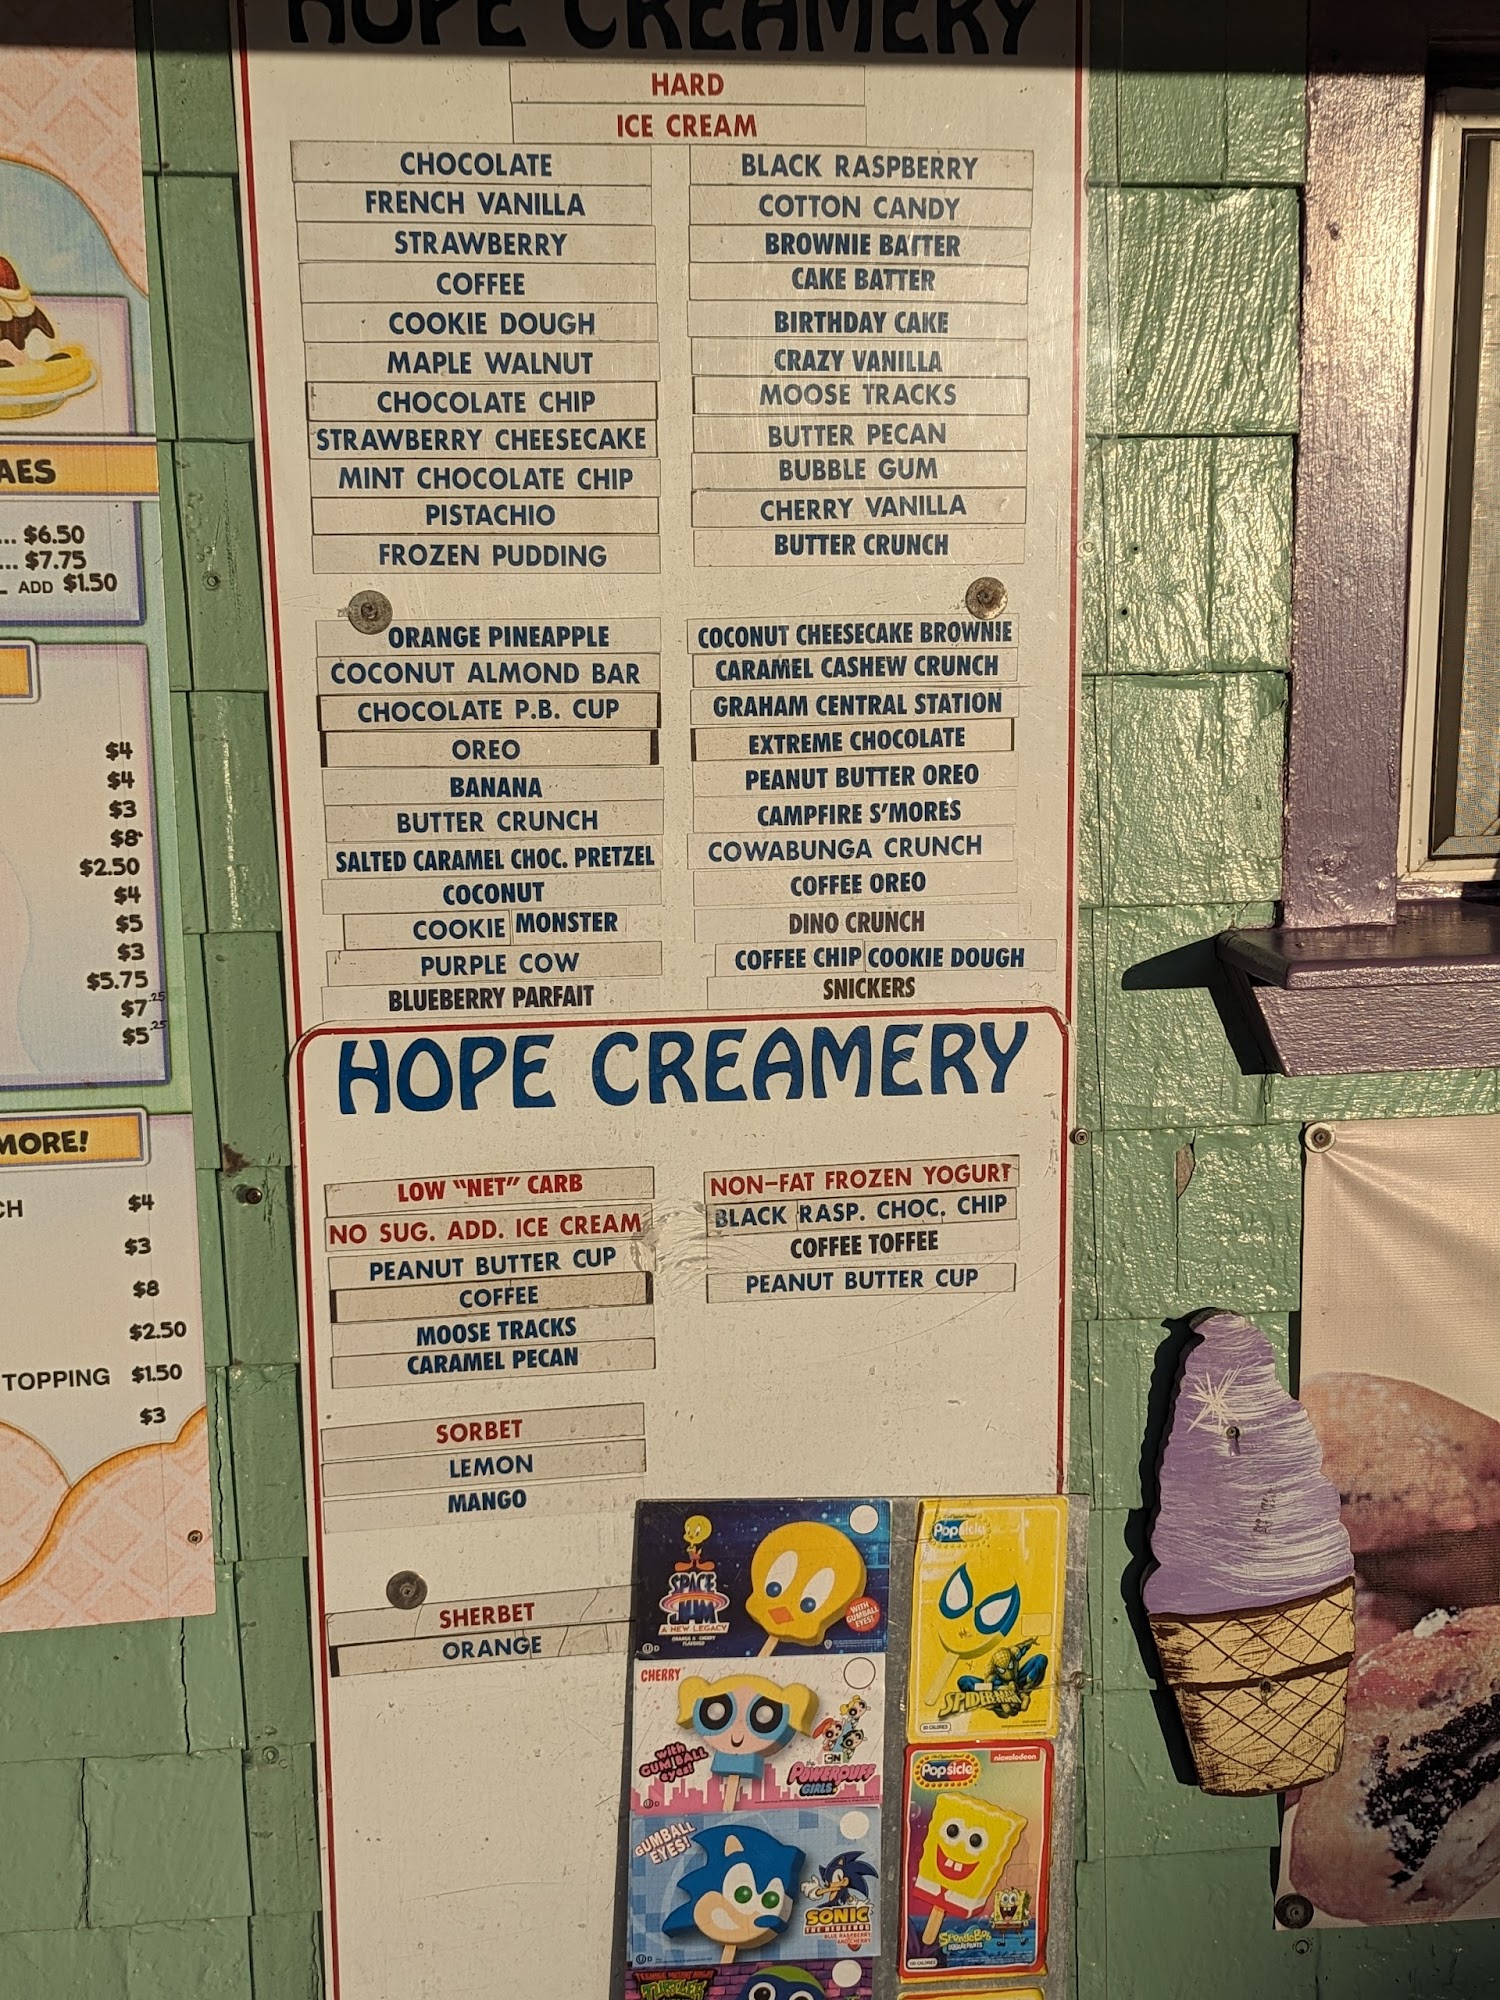 HOPE CREAMERY
HARD
ICE CREAM
CHOCOLATE
FRENCH VANILLA
STRAWBERRY
COFFEE
COOKIE DOUGH
MAPLE WALNUT
CHOCOLATE CHIP
STRAWBERRY CHEESECAKE
MINT CHOCOLATE CHIP
PISTACHIO
FROZEN PUDDING
BLACK RASPBERRY
COTTON CANDY
BROWNIE BATTER
CAKE BATTER
BIRTHDAY CAKE
CRAZY VANILLA
MOOSE TRACKS
BUTTER PECAN
BUBBLE GUM
CHERRY VANILLA
BUTTER CRUNCH
ORANGE PINEAPPLE
COCONUT ALMOND BAR
CHOCOLATE P.B. CUP
OREO
BANANA
BUTTER CRUNCH
SALTED CARAMEL CHOC. PRETZEL
COCONUT
COOKIE MONSTER
PURPLE COW
BLUEBERRY PARFAIT
COCONUT CHEESECAKE BROWNIE
CARAMEL CASHEW CRUNCH
GRAHAM CENTRAL STATION
EXTREME CHOCOLATE
PEANUT BUTTER OREO
CAMPFIRE S'MORES
COWABUNGA CRUNCH
COFFEE OREO
DINO CRUNCH
COFFEE CHIP COOKIE DOUGH
SNICKERS
HOPE CREAMERY
LOW "NET" CARB
NO SUG. ADD. ICE CREAM
PEANUT BUTTER CUP
COFFEE
MOOSE TRACKS
CARAMEL PECAN
NON-FAT FROZEN YOGURT
BLACK RASP. CHOC. CHIP
COFFEE TOFFEE
PEANUT BUTTER CUP
SORBET
LEMON
MANGO
SHERBET
ORANGE
AES
... $6.50
... $7.75
ADD $1.50
$4
$4
$3
$8
$2.50
$4
$5
$3
$5.75
$7.25
$5.25
MORE!
CH $4
$3
$8
$2.50
TOPPING $1.50
$3
SPACE
JAM
A NEW LEGACY
ORANGE & CHERRY
FLAVORED
WITH
GUMBALL
EYES!
CHERRY
with
GUMBALL
eyes!
CN
the
POWERPUFF
GIRLS
GUMBALL
EYES!
SONIC
THE HEDGEHOG
BLUE RASPBERRY
AND CHERRY
TURTLES
Popsicle
SPIDER-MAN
Popsicle
nickelodeon
SpongeBob
SQUAREPANTS